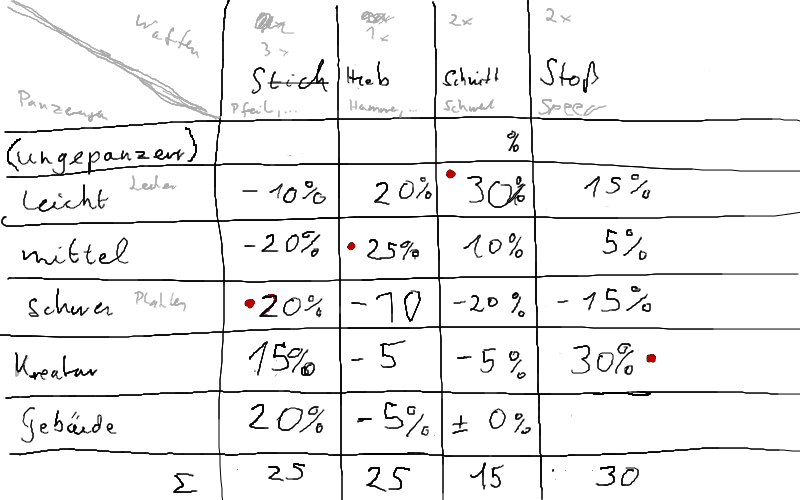 Waffen 2x 2x
3x 1x
Stich Hieb Schnitt Stoß
Panzerung Pfeil,... Hammer,... Schwert Speer
(ungepanzert) %
leicht Leder -10% 20% 30% 15%
mittel -20% 25% 10% 5%
schwer Platten 20% -10 -20% -15%
Kreatur 15% -5 -5% 30%
Gebäude 20% -5% ±0%
Σ 25 25 15 30